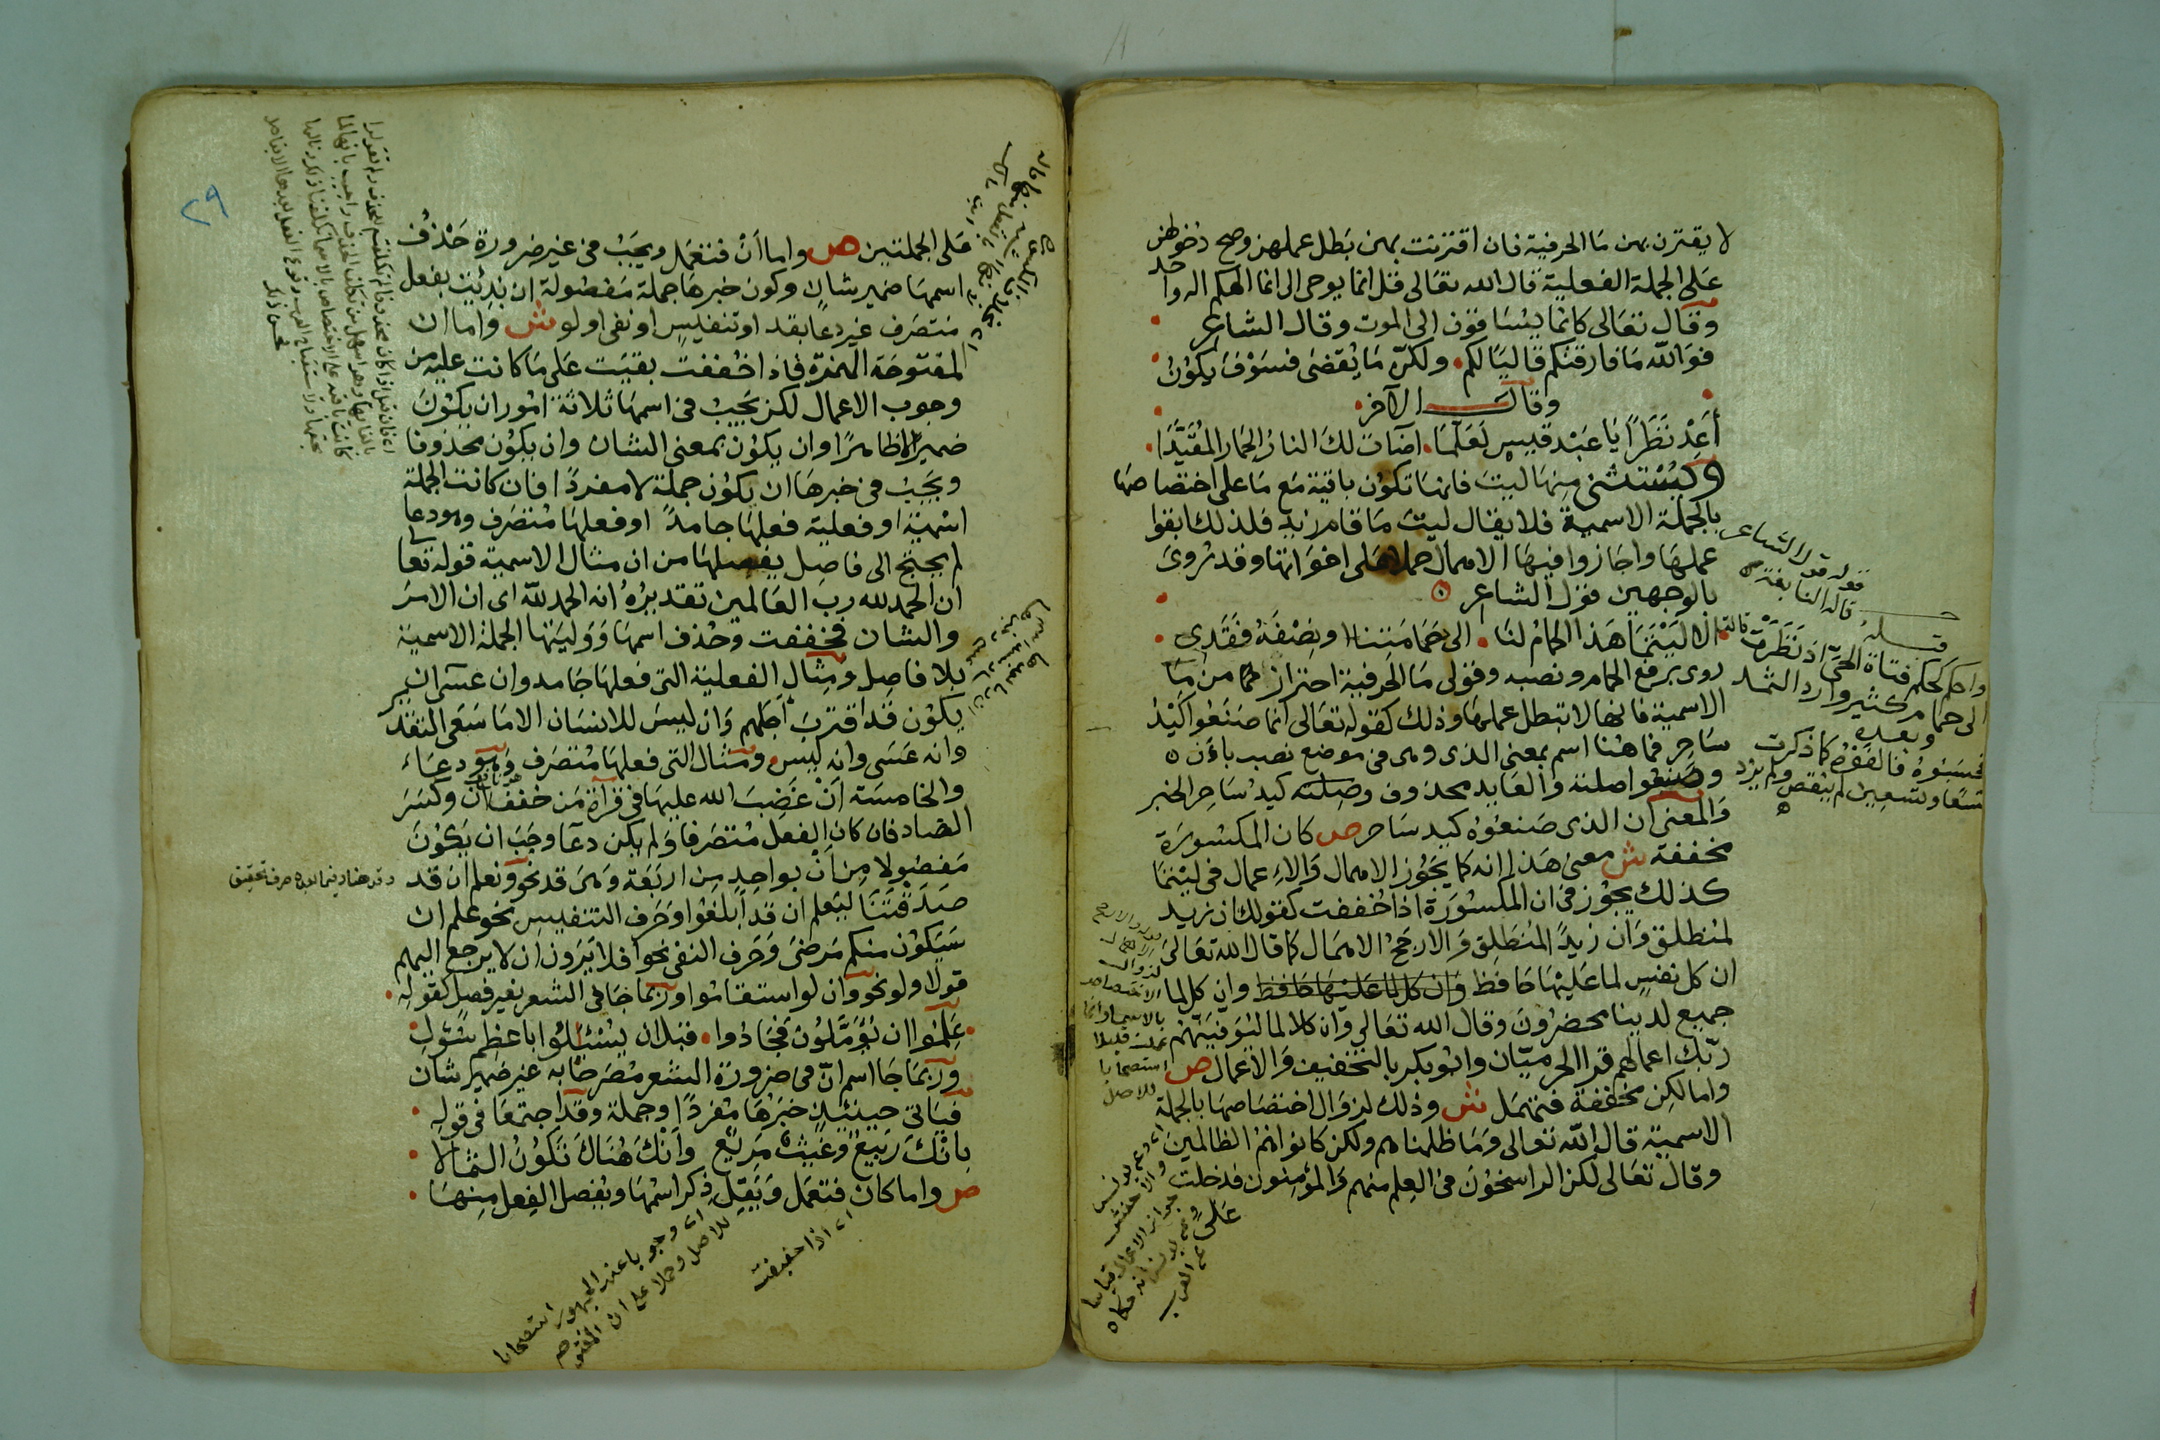 لا يقترن بهن مَا الحرفية فان اقترنت بهن بَطل عملهن وصح دخولهن
عَلى الجملة الفعلية قال الله تعَالى قل انما يوحى الى انما الهكم اله واحد
وقال تعَالى كانما يسَاقون الى الموت وقال الشاعر
فوَالله مَا فارقتكم قاليًا لكم ولكنّ مَا يُقضى فسَوْفَ يكوُنُ
وقال الآخر
أعِدْ نَظَرًا يَا عَبْد قيس لعَلَّمَا اضآت لكَ النارُ الحِمَارَ المُقَيَّدَا
ويُسْتثنى منها ليتَ فانهَا تكوُن باقية مَع مَا على اختصاصهَا
بالجملة الاسمية فلا يقال ليت مَا قام زيد فلذلك ابقوا
عملهَا واجَازوا فيهَا الاهمال حملا على اخوَاتها وقد رُوىَ
بالوجهين قول الشاعر
قالت الا لَيْتَمَا هَذا الحمامُ لنَا الى حَمَامَتنا او نِصْفَهُ فقَدِى
روى برفع الحمام ونصبه وقولى مَا الحَرفية احتراز عمّا من مَا
الاسمية فانها لا تبطل عملهَا وذلك كقوله تعَالى انما صَنَعُوا كيْدُ
سَاحِرٍ فما هُنا اسم بمعنى الذى وهى فى موضع نصب بان
وصَنعُوا صلتة والعَايد محذوف وصلته كيدُ سَاحِر الخبر
وَالمعنى ان الذى صَنعُوهُ كيد سَاحر ص كان المكسُورَة
مخففة ش معنى هَذا انه كما يجَوُز الاهمال وَالاعمال فى ليتمَا
كذلك يجوُز فى ان المكسُورَة اذا خُففت كقولك ان زيد
لمُنطلق وَان زيدًا لمنطلق وَالارجحُ الاهمَال كما قال الله تعَالى
ان كل نفسٍ لما عَليْهَا حَافظ وان كل لما عليْهَا حَافظ وان كل لما
جميع لدينا محضرُونَ وقال الله تعَالى وَان كلا لما ليُوَفينهُمْ
ربّك اعمالهم قرا الحرميّان وابُو بكر بالتخفيف وَالاعمال ص
واما لكِن مخففة فتهمَل ش وذلك لزوَال اختصَاصهَا بالجملة
الاسمية قال الله تعالى وَمَا ظلمناهم ولكن كانوا هُمُ الظالمينَ
وقال تعَالى لكن الراسخُونَ فى العِلم منهم وَالمؤمنون فدخلت
عَلى
قوله قول الشاعر
قاله النابغة
قبله
واحكم كحكم فتاة الحىّ اذ نَظَرَتْ
الى حمام وارد الثمد
وبعده
فحسَبوهُ فالفَوْهُ كما ذكرت
تسعًا وتسعين لم ينقص ولم يزد
٢٩
عَلى الجملتين ص واما اَنْ فتعمَل ويجَبُ فى غير ضرورة حَذفُ
اسمهَا ضمير شان وكون خبرهَا جملة مَفصُولة ان بُدِئت بفعل
متصَرف غير دعًا بقد او تنفيسٍ او نفى او لو ش واما ان
المفتوحَة الهمزة فاذا خُففت بقيَت عَلى مَا كانت عليه من
وجوب الاعمال لكن يجَبُ فى اسمهَا ثلاثة امُور ان يكوُنَ
ضميرًا لا ظاهرًا وان يكوُن بمعنى الشان وان يكوُن محذوفا
ويجَبُ فى خبرهَا ان يكوُن جملة لا مفردًا فان كانت الجملة
اسمية او فعلية فعلهَا جامدٌ او فعلهَا مُتصَرف وهو دعا
لم يحتج الى فاصِل يفصلهَا من ان مثال الاسمية قوله تعَالى
ان الحمد لله رب العَالمين تقديرُهُ انه الحمد لله اى ان الامرَ
والشان فخففت وحُذف اسمهَا وَوَليَتها الجملة الاسمية
بلا فاصِل ومثال الفعلية التى فعلهَا جَامد وان عَسَى ان
يكوُن قَد اقتربَ اجلهم وَان ليسَ للانسَان الا مَا سَعَى التقدير
وانه عَسَى وانه ليسَ ومثال التى فعلهَا مُتصَرف وَهوَ دعَاء
والخامسَة اَنْ غَضِبَ الله عليهَا فى قرآءة مَن خفف اَنْ وكسَرَ
الضاد فان كان الفعل مُتصَرفا وَلم يكن دعَا وجَبَ ان يكوُنَ
مَفصُولا مِن اَنْ بواحِدٍ من اربَعَة وَهىَ قد نحوُ ونعلم ان قد
صَدَقتنَا ليَعلم ان قد اَبلغُوا وحَرف التنفيس نحو علم ان
سَيَكوُن منكم مَرضَى وَحَرف النفى نحو افلا يَرَون ان لا يرجع اليهم
قولا ولو نحو وَان لو استقامُوا وربما جَا فى الشعر بغير فصلٍ كقولِه
عَلِمُوا ان يُؤَمَّلوُن فجَادُوا قبْلَ ان يُسْئلوُا باعظمِ سُؤلِ
وربّمَا جَا اسم اَنْ فى ضرورة الشعر مصَرحًا به غير ضميرِ شان
فيَاتى حينئذٍ خبَرُهَا مفردًا وجملة وقد اجتمعَا فى قوله
بانكَ رَبيعٌ وغَيثٌ مَريعٌ وَانكَ هُنَاكَ تكوُنُ الثمالا
ص واما كان فتعمَل وَيَقِلّ ذكر اسمهَا ويُفصل الفِعل منهَا
اى اذا خففت
اى وجوبا عند الجمهور استصحابا
للاصل وحملا على ان